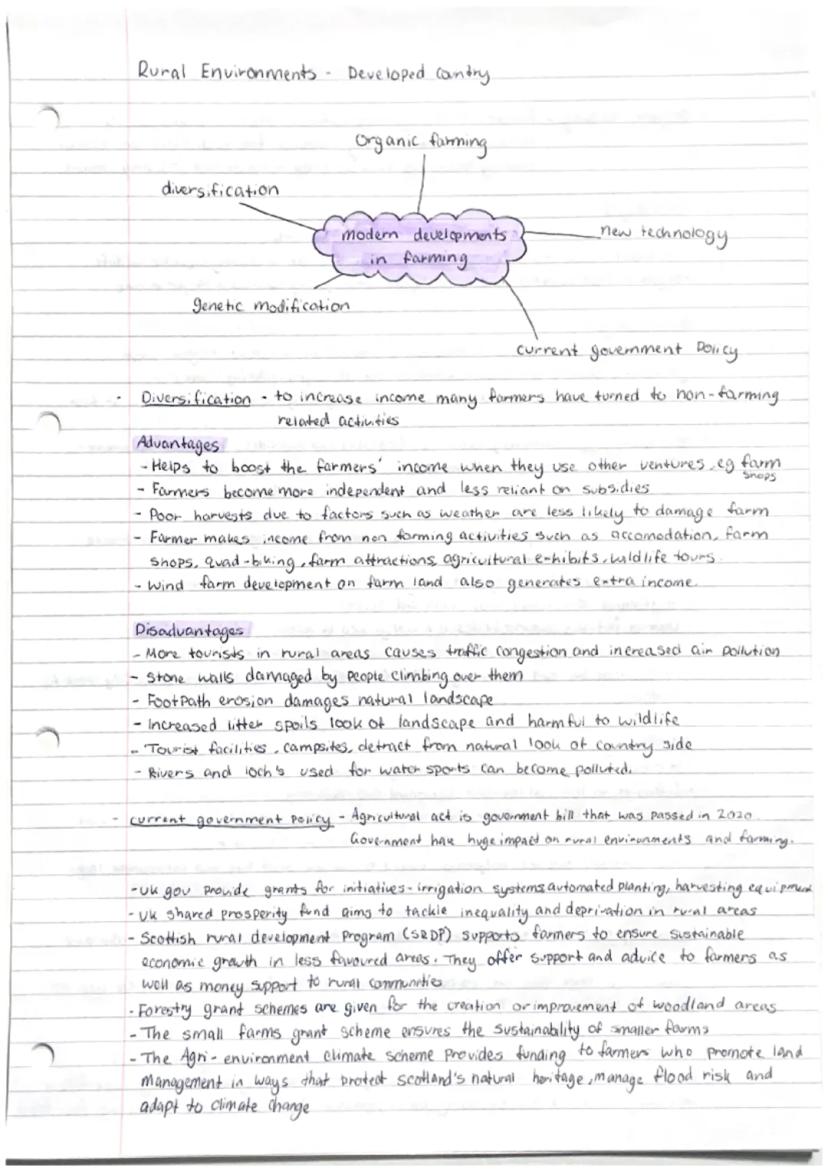 Rural Environments - Developed Country
Organic farming
diversification
modern developments
in farming
new technology
genetic modification
current government Policy
- Diversification - to increase income many farmers have turned to non-farming
related activities
Advantages
- Helps to boost the farmers' income when they use other ventures, eg farm
shops
- Farmers become more independent and less reliant on subsidies
- Poor harvests due to factors such as weather are less likely to damage farm
- Farmer makes income from non farming activities such as accomodation, farm
shops, quad-biking, farm attractions, agricultural exhibits, wildlife tours.
- Wind farm development on farm land also generates extra income.
Disadvantages
- More tourists in rural areas causes traffic congestion and increased air pollution
- Stone walls damaged by people climbing over them
- FootPath erosion damages natural landscape
- Increased litter spoils look of landscape and harmful to wildlife
- Tourist facilities, campsites, detract from natural look of country side
- Rivers and loch's used for water sports can become polluted.
- current government Policy - Agricultural act is government bill that was passed in 2020.
Government have huge impact on rural environments and farming.
- Uk gov provide grants for initiatives - irrigation systems, automated planting, harvesting equipment
- Uk shared prosperity fund aims to tackle inequality and deprivation in rural areas
- Scottish rural development Program (SRDP) supports farmers to ensure sustainable
economic growth in less favoured areas. They offer support and advice to farmers as
well as money support to rural communities.
- Forestry grant schemes are given for the creation or improvement of woodland areas
- The small farms grant scheme ensures the sustainability of smaller farms
- The Agri-environment climate scheme provides funding to farmers who promote land
management in ways that protect scotland's natural heritage, manage flood risk and
adapt to climate change